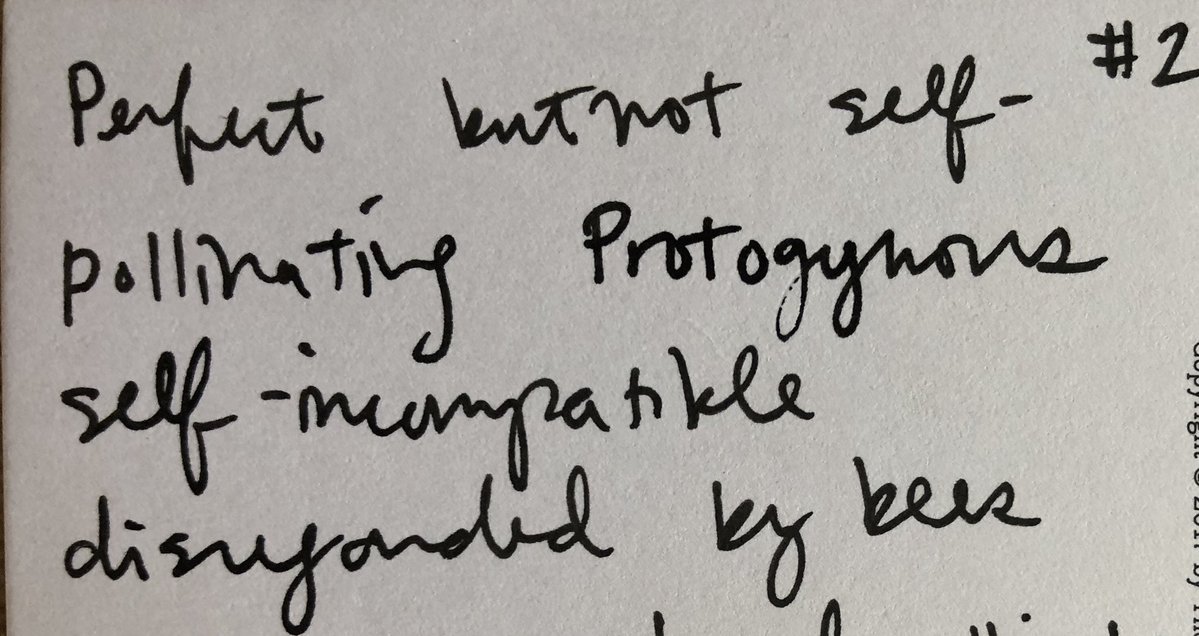 #2
Perfect but not self-
pollinating Protogynous
self-incompatible
disregarded by bees